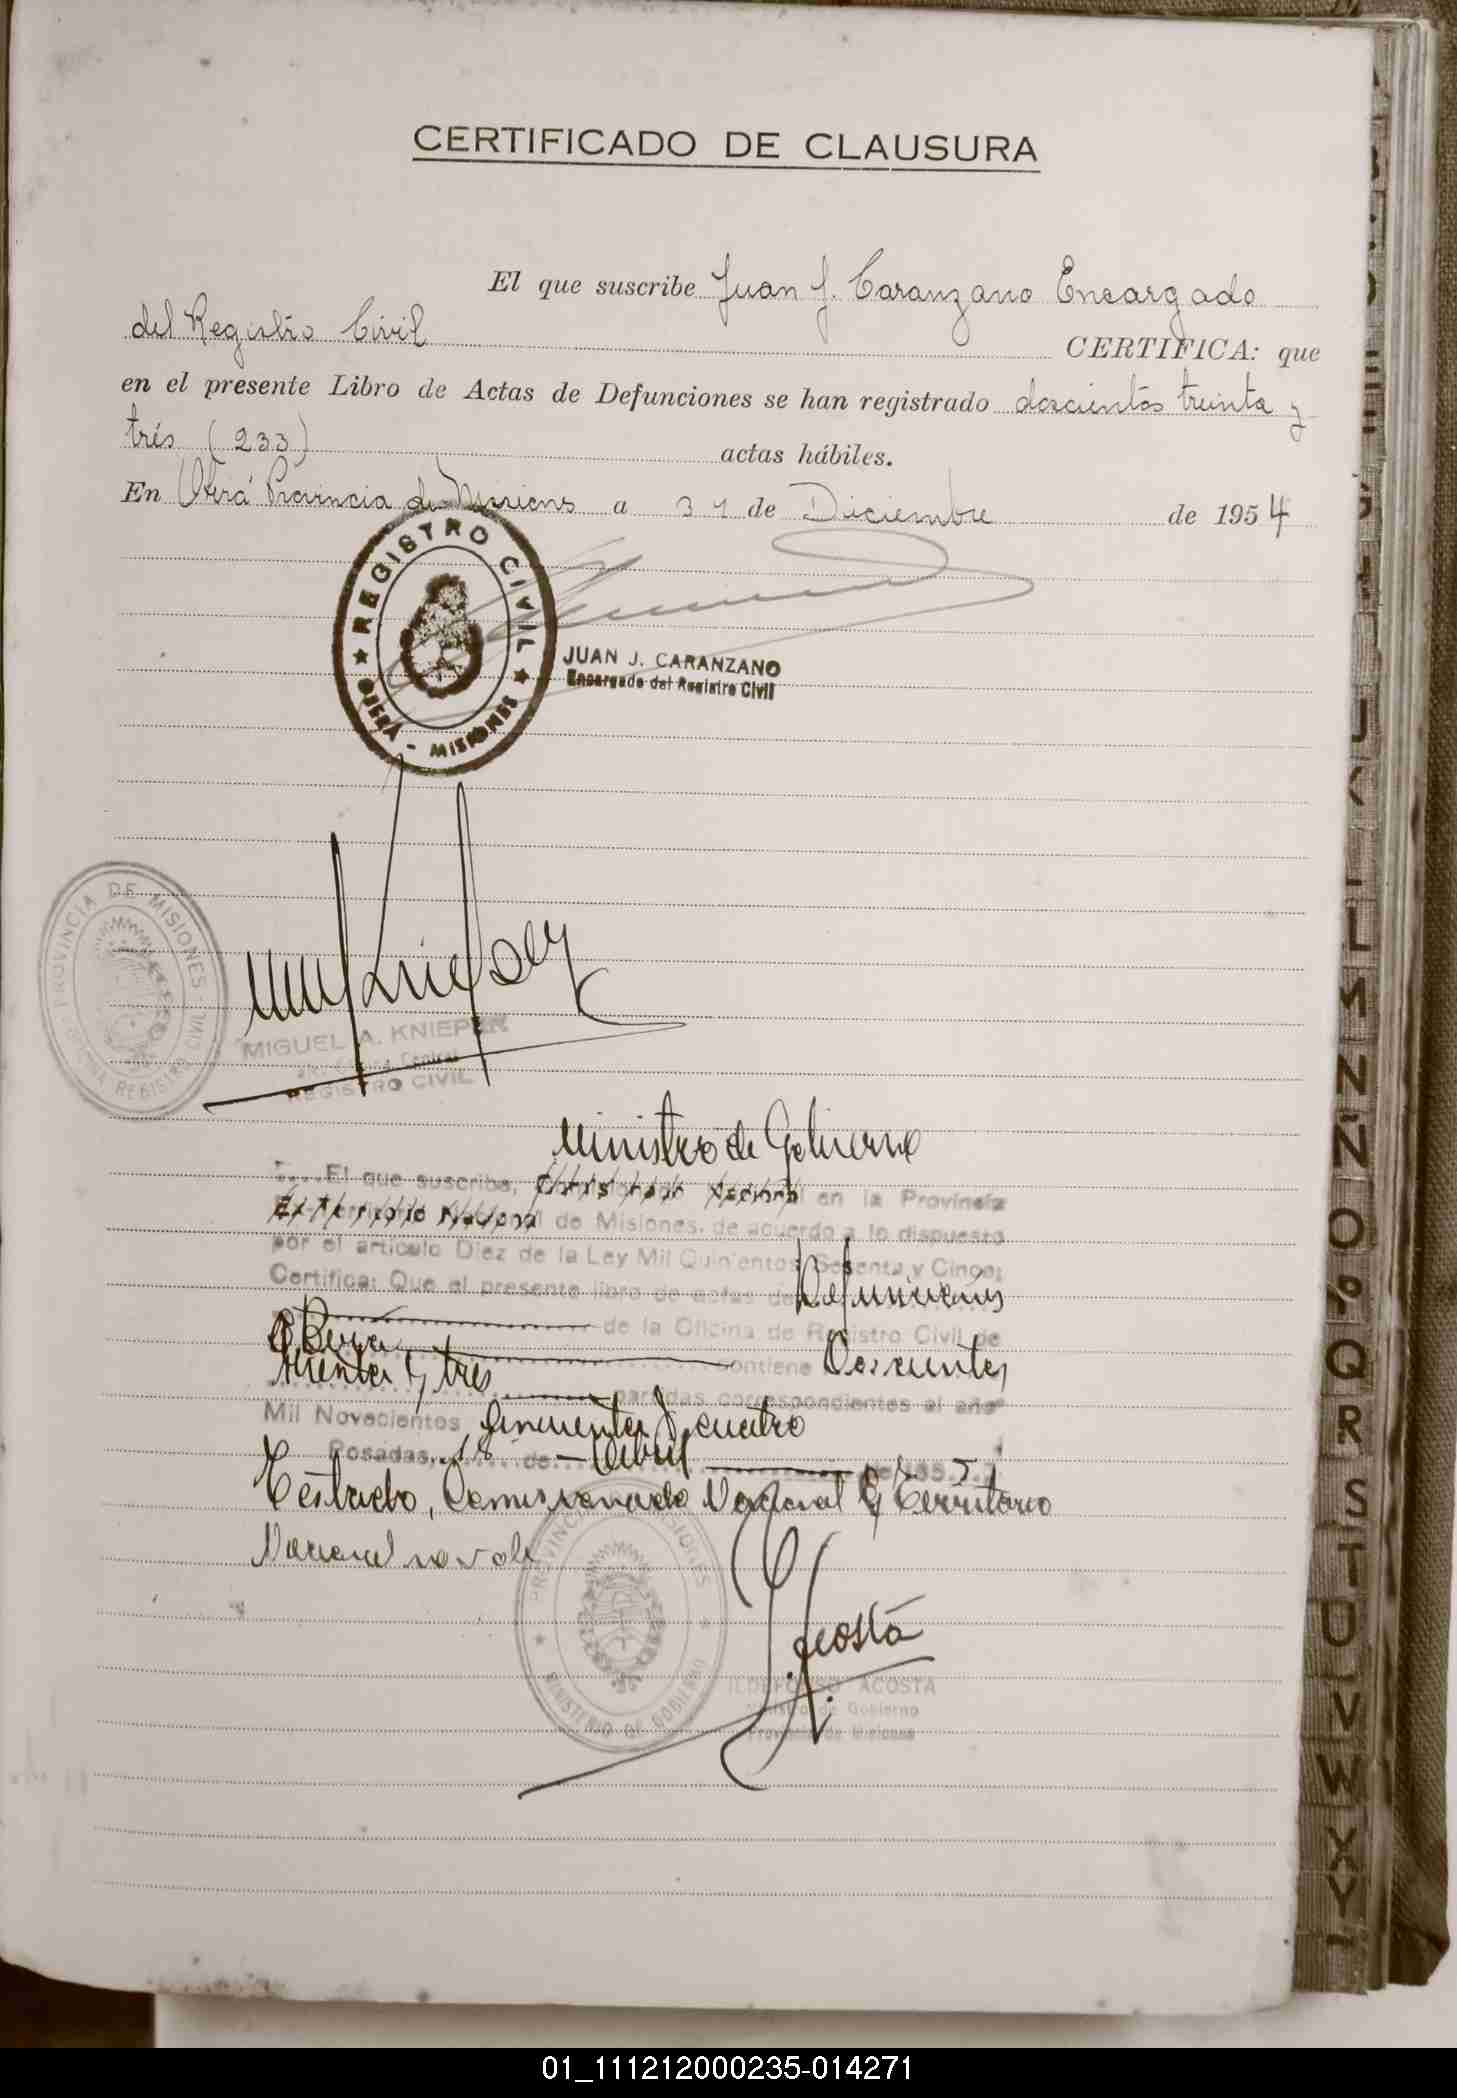 CERTIFICADO DE CLAUSURA
El que suscribe Juan J. Caranzano Encargado
del Registro Civil CERTIFICA: que
en el presente Libro de Actas de Defunciones se han registrado doscientos treinta y
trés (233) actas hábiles.
En Oberá Provincia de Misiones a 31 de Diciembre de 1954
★ REGISTRO CIVIL ★
OBERÁ - MISIONES
JUAN J. CARANZANO
Encargado del Registro Civil
PROVINCIA DE MISIONES
OFICINA REGISTRO CIVIL
MIGUEL A. KNIEPER
REGISTRO CIVIL
Ministro de Gobierno
El que suscribe, Comisionado Nacional en la Provincia
Ex-Territorio Nacional de Misiones, de acuerdo a lo dispuesto
por el artículo Diez de la Ley Mil Quinientos Sesenta y Cinco;
Certifica: Que el presente libro de actas de Defunciones
de la Oficina de Registro Civil de
Oberá contiene Doscientos
treinta y tres partidas correspondientes al año
Mil Novecientos cincuenta y cuatro
Posadas, 18 de Abril de 1955
Testado, Comisionado Nacional y Territorio
Nacional no vale
PROVINCIA MISIONES
MINISTERIO DE GOBIERNO
I. Acosta
ILDEFONSO ACOSTA
Ministro de Gobierno
Provincia de Misiones
J
L
M
N
Ñ
O
P
Q
R
S
T
U
V
W
X
Y
01_111212000235-014271